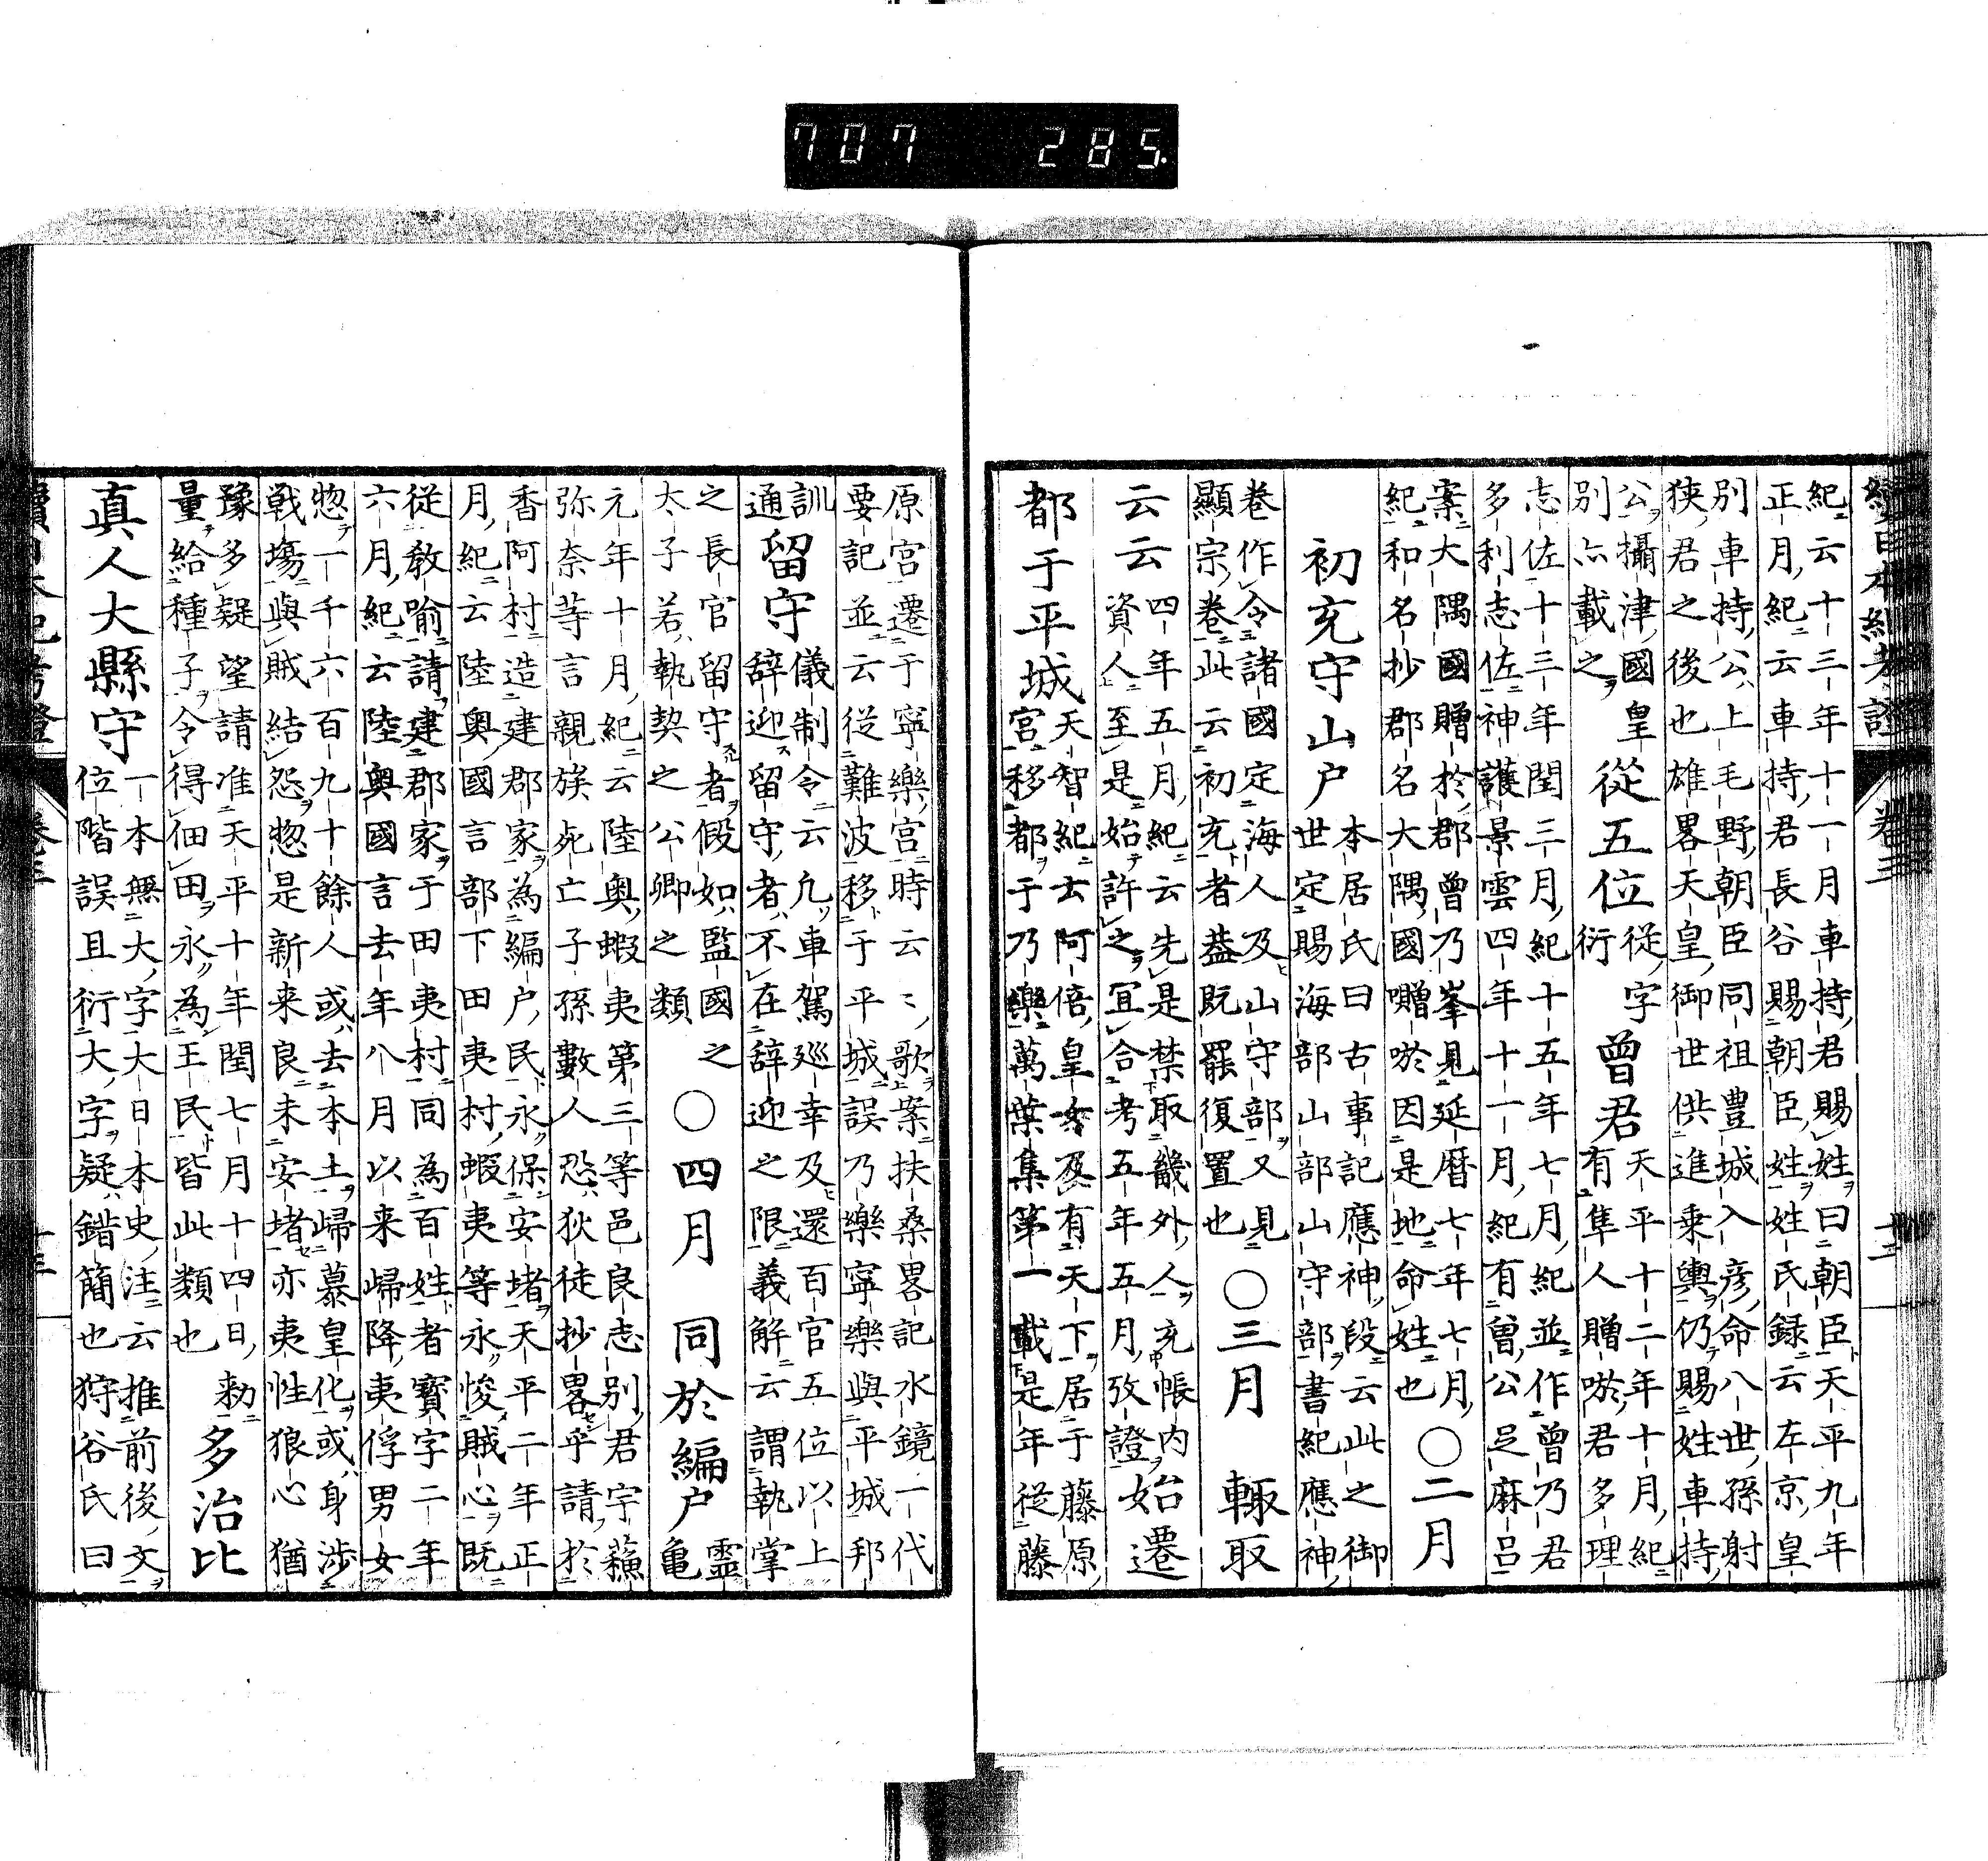 707 285.
續日本紀考證 卷三 十二
紀云十三年十一月車持君賜姓曰朝臣天平九年
正月紀云車持君長谷賜朝臣姓姓氏録云左京皇
別車持公上毛野朝臣同祖豊城入彦命八世孫射
狭君之後也雄畧天皇御世供進乗輿仍賜姓車持
公攝津國皇
別亦載之
從五位
從字
衍
曾君
天平十二年十月紀
有隼人贈唹君多理
志佐十三年閏三月紀十五年七月紀並作曾乃君
多利志佐神護景雲四年十一月紀有曾公足麻呂
案大隅國贈於郡曾乃峯見延暦七年七月
紀和名抄郡名大隅國囎唹因是地命姓也
○二月
初充守山户
本居氏曰古事記應神段云此之御
世定賜海部山部山守部書紀應神
卷作令諸國定海人及山守部又見
顯宗卷此云初充者蓋既罷復置也
○三月 輙取
云云
四年五月紀云先是禁取畿外人充帳内
資人至是始許之冝合考五年五月攷證
始遷
都于平城
天智紀云阿倍皇女及有天下居于藤原
宮移都于乃樂萬葉集第一載是年從藤
原宮遷于寧樂宮時云〻歌案扶桑畧記水鏡一代
要記並云從難波移于平城誤乃樂寧樂與平城邦
訓
通
留守
儀制令云凡車駕巡幸及還百官五位以上
辞迎留守者不在辞迎之限義解云謂執掌
之長官留守者假如監國之
太子若執契之公卿之類
○四月 同於編户
靈
亀
元年十月紀云陸奥蝦夷第三等邑良志別君宇蘓
弥奈等言親族死亡子孫數人恐狄徒抄畧乎請於
香阿村造建郡家為編户民永保安堵天平二年正
月紀云陸奥國言部下田夷村蝦夷等永悛賊心既
從敎喻請建郡家于田夷村同為百姓者寳字二年
六月紀云陸奥國言去年八月以来歸降夷俘男女
惣一千六百九十餘人或去本土歸慕皇化或身渉
戦塲與賊結怨惣是新来良未安堵亦夷性狼心猶
豫多疑望請准天平十年閏七月十四日勅
量給種子令得佃田永為王民皆此類也
多治比
真人大縣守
一本無大字大日本史注云推前後文
位階誤且衍大字疑錯簡也狩谷氏曰
續日本紀考證 卷三 十三